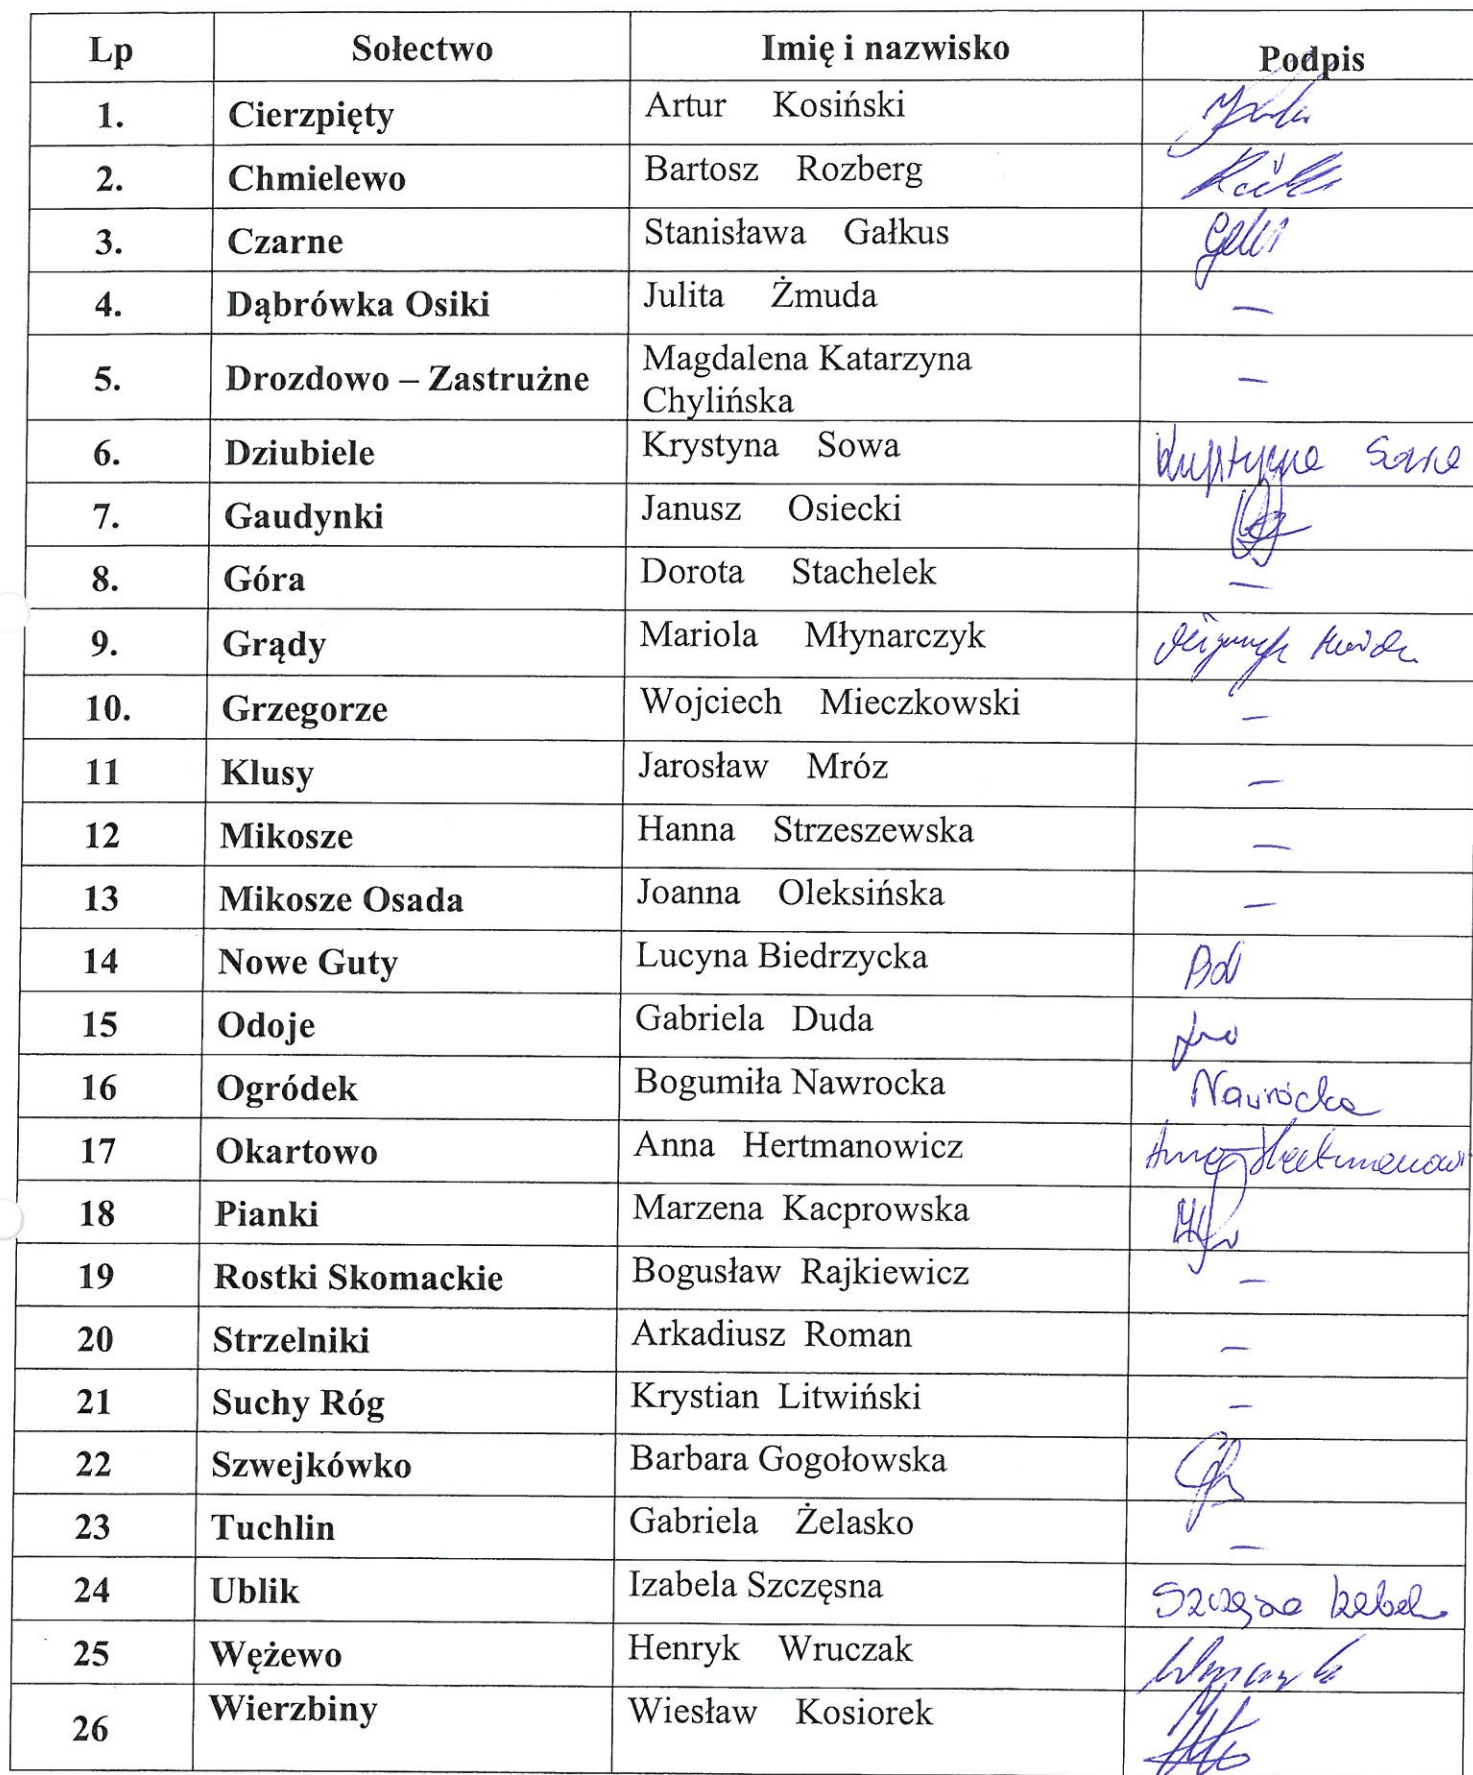 Lp Sołectwo Imię i nazwisko Podpis
1. Cierzpięty Artur Kosiński
2. Chmielewo Bartosz Rozberg
3. Czarne Stanisława Gałkus
4. Dąbrówka Osiki Julita Żmuda —
5. Drozdowo – Zastrużne Magdalena Katarzyna
Chylińska —
6. Dziubiele Krystyna Sowa
7. Gaudynki Janusz Osiecki
8. Góra Dorota Stachelek —
9. Grądy Mariola Młynarczyk
10. Grzegorze Wojciech Mieczkowski —
11 Klusy Jarosław Mróz —
12 Mikosze Hanna Strzeszewska —
13 Mikosze Osada Joanna Oleksińska —
14 Nowe Guty Lucyna Biedrzycka
15 Odoje Gabriela Duda
16 Ogródek Bogumiła Nawrocka Nawrocka
17 Okartowo Anna Hertmanowicz
18 Pianki Marzena Kacprowska
19 Rostki Skomackie Bogusław Rajkiewicz —
20 Strzelniki Arkadiusz Roman —
21 Suchy Róg Krystian Litwiński —
22 Szwejkówko Barbara Gogołowska
23 Tuchlin Gabriela Żelasko —
24 Ublik Izabela Szczęsna
25 Wężewo Henryk Wruczak
26 Wierzbiny Wiesław Kosiorek